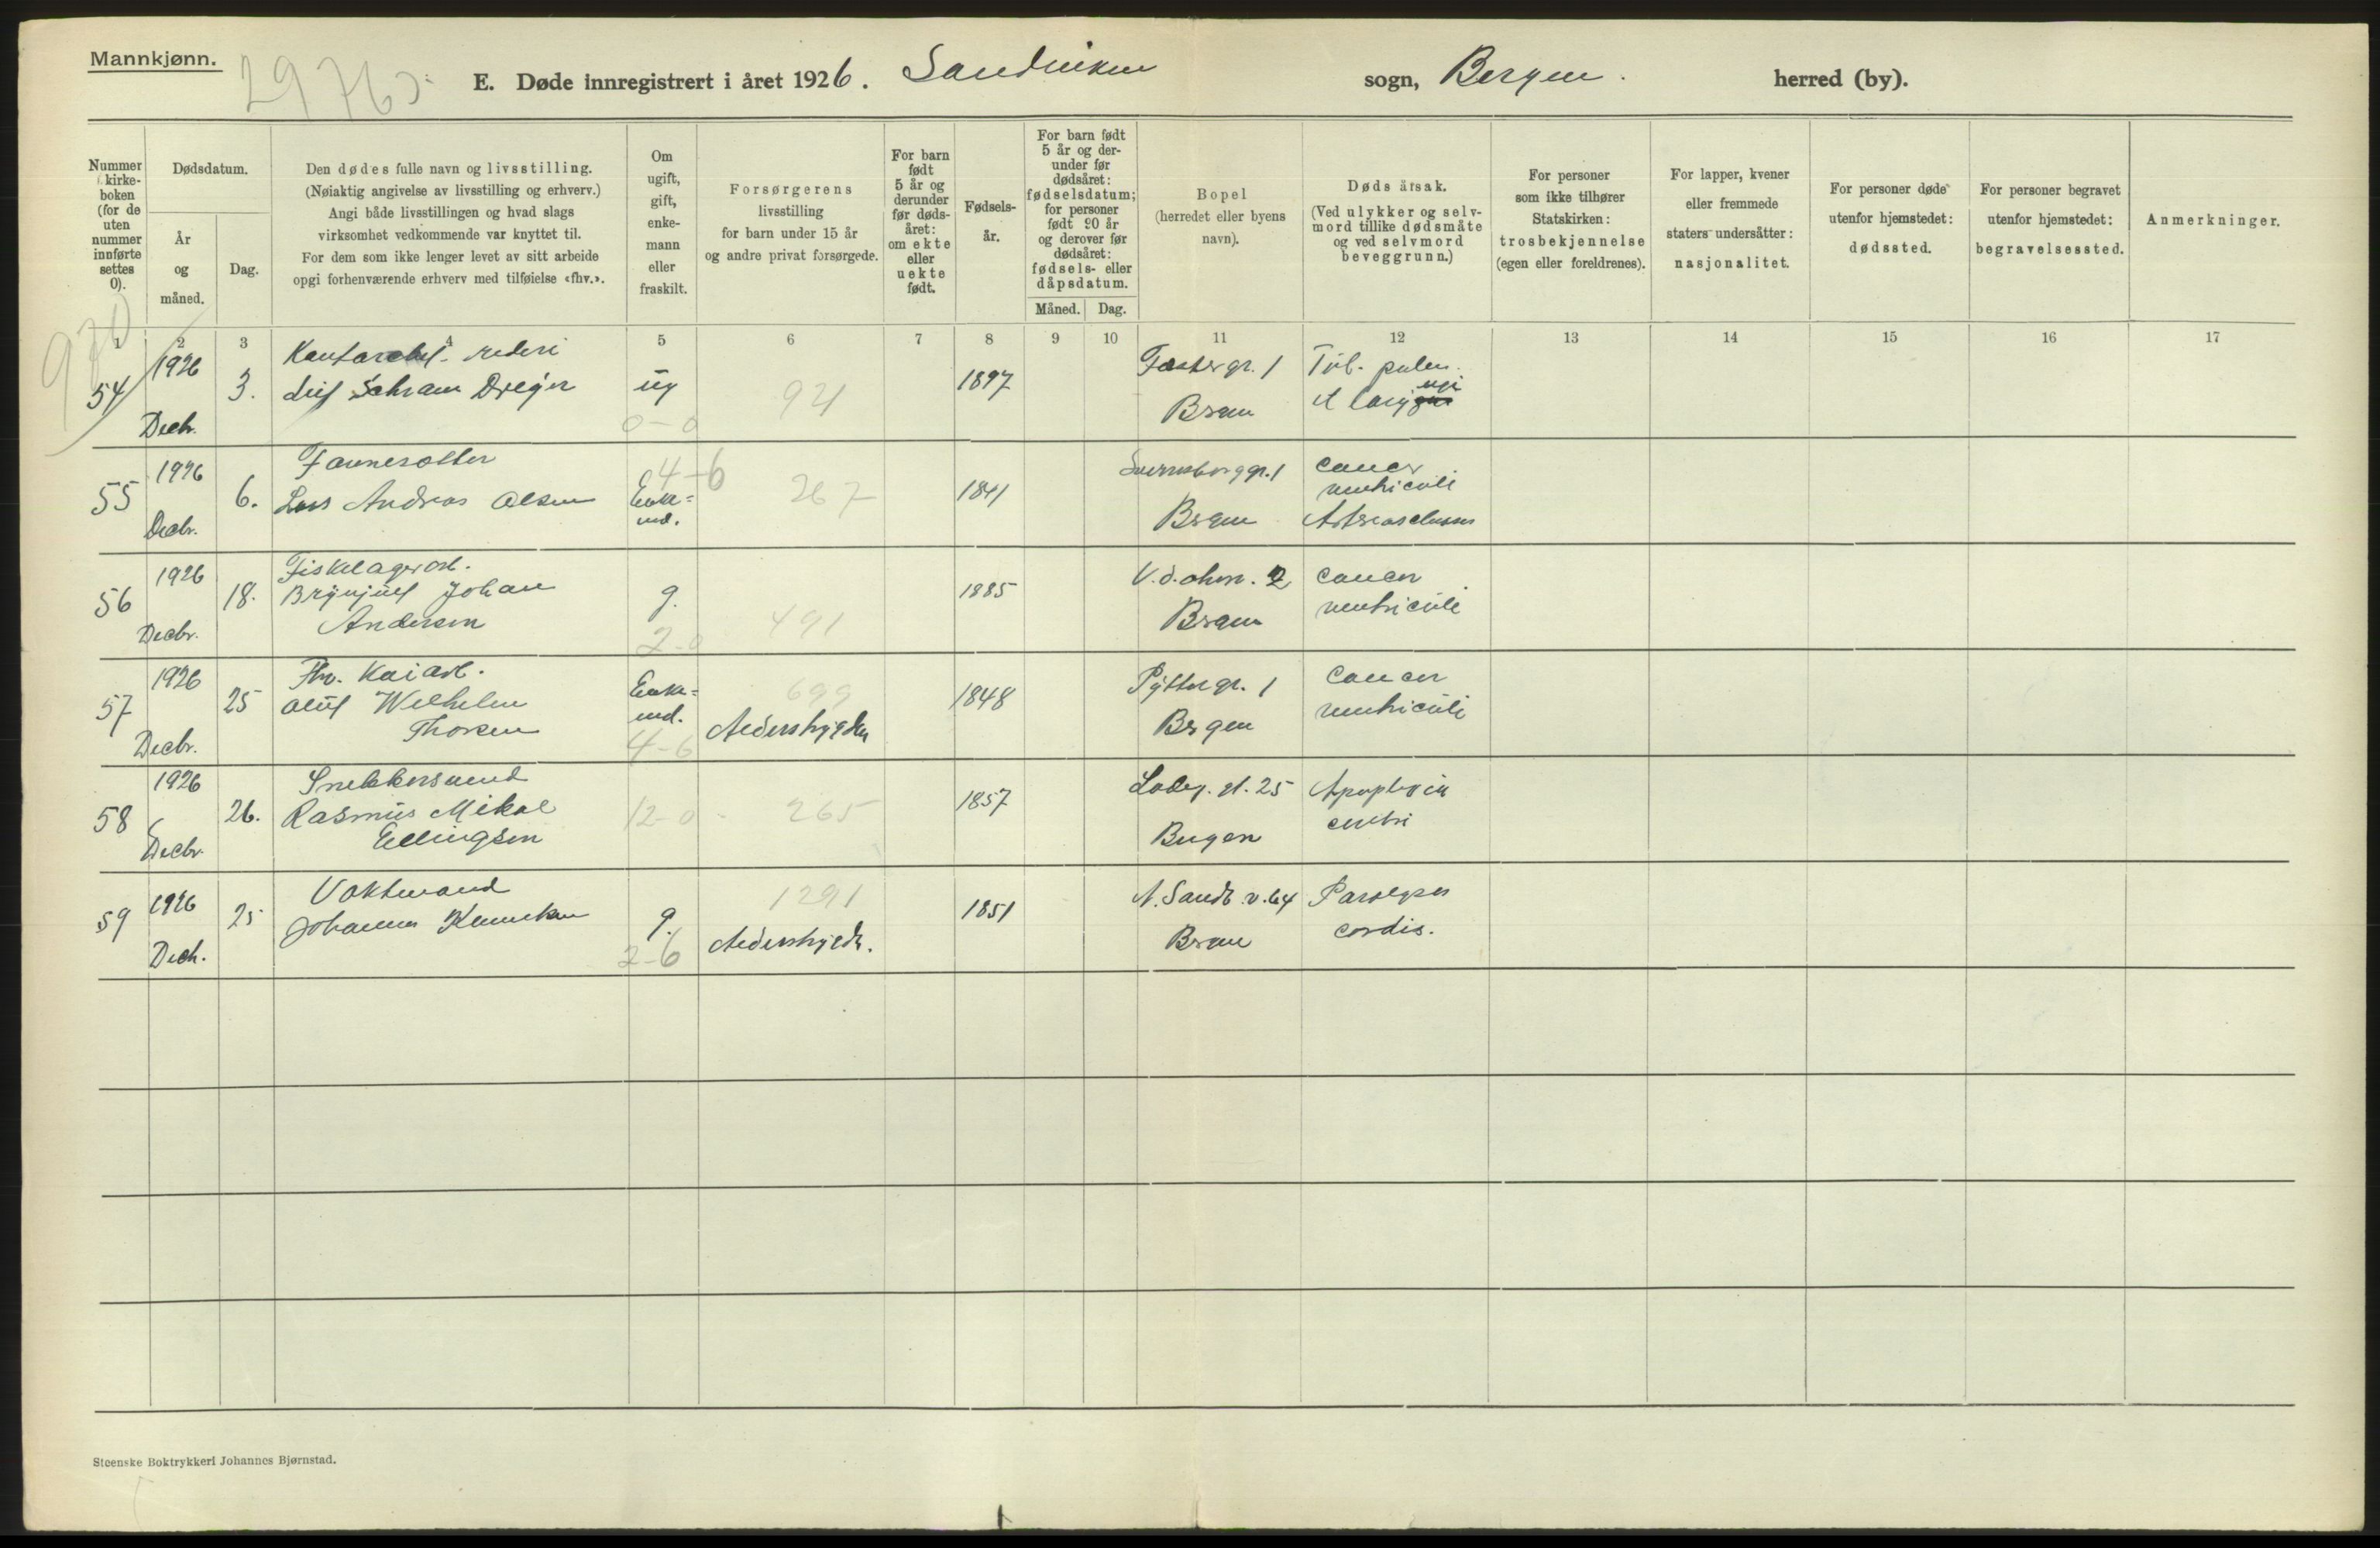 Mannkjønn.
E. Døde innregistrert i året 1926. Sandviken sogn, Bergen. herred (by).
Nummer
kirke-
boken
(for de
uten
nummer
innførte
settes
0).
Dødsdatum.
År
og
måned.
Dag.
Den dødes fulle navn og livsstilling.
(Nøiaktig angivelse av livsstilling og erhverv.)
Angi både livsstillingen og hvad slags
virksomhet vedkommende var knyttet til.
For dem som ikke lenger levet av sitt arbeide
opgi forhenværende erhverv med tilføielse «fhv.».
Om
ugift,
gift,
enke-
mann
eller
fraskilt.
Forsørgerens
livsstilling
for barn under 15 år
og andre privat forsørgede.
For barn
født
5 år og
derunder
før døds-
året:
om ekte
eller
uekte
født.
Fødsels-
år.
For barn født
5 år og der-
under før
dødsåret:
fødselsdatum;
for personer
født 90 år
og derover før
dødsåret:
fødsels- eller
dåpsdatum.
Måned.
Dag.
Bopel
(herredet eller byens
navn).
Dødsårsak.
(Ved ulykker og selv-
mord tillike dødsmåte
og ved selvmord
beveggrunn.)
For personer
som ikke tilhører
Statskirken:
trosbekjennelse
(egen eller foreldrenes).
For lapper, kvener
eller fremmede
staters undersåtter:
nasjonalitet.
For personer døde
utenfor hjemstedet:
dødssted.
For personer begravet
utenfor hjemstedet:
begravelsessted.
Anmerkninger.
1 2 3 4 5 6 7 8 9 10 11 12 13 14 15 16 17
54
1926
Decbr.
3.
rederi
Leif Schram Dreyer
ug
0-0
921
1897
1
Brgen
Tub. pulm.
et laryngi
55
1926
Decbr.
6.
Lars Andreas Olsen
4-6
Enke=
md.
267
1841
Sverresborggr. 1
Brgen
Cancer
ventriculi
56
1926
Decbr.
18.
Fiskelagerarb.
Brynjulf Johan
Andersen
g.
2-0
491
1885
2
Brgen
Cancer
ventriculi
57
1926
Decbr.
25
Fhv. Kaiarb.
Oluf Wilhelm
Thorsen
Enke=
md.
4-6
699
Alderstrygden
1848
Pyttergr. 1
Brgen
Cancer
ventriculi
58
1926
Decbr.
26.
Snekkersvend
Rasmus Mikal
Ellingsen
12-0
265
1857
25
Bergen
Apoplexia
cerebri
59
1926
Decb.
25
Vaktmand
Johannes
g.
2-6
1291
Alderstrygd.
1851
N. Sandv. v. 64
Brgen
Paralysis
cordis.
Steenske Boktrykkeri Johannes Bjørnstad.